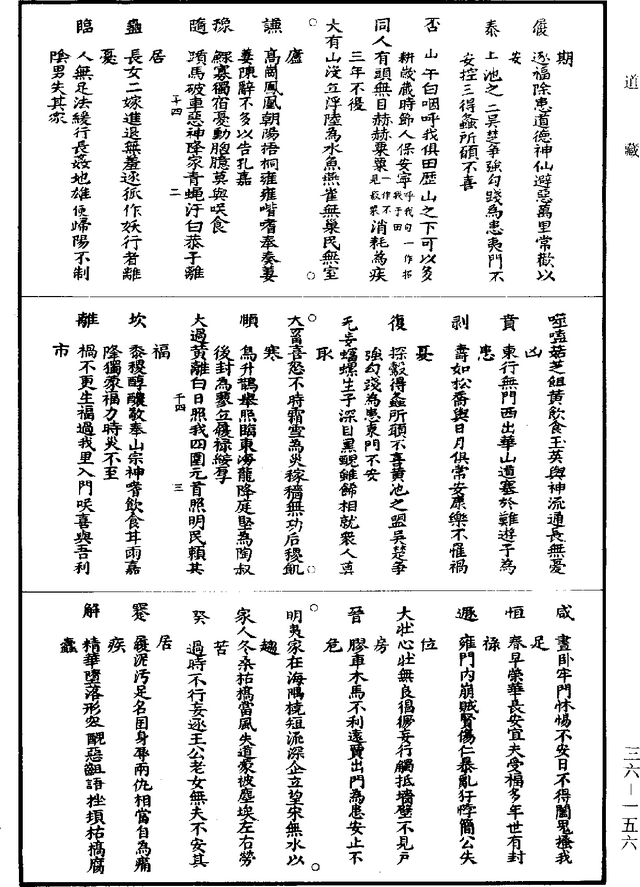 道藏
期
履 逐福除患道德神仙避惡萬里常歡以
安
泰 上池之二吴楚爭強勾踐為患夷門不
安控三得螽所碩不喜
否 山午白咽呼我俱田歷山之下可以多
耕歲歲時節人保安寧呼我一作招我于田句
同人有頭無目赫赫粟粟一作不見菽粟消耗為疾
三年不復
大有山淺立浮陸為水魚燕雀無巢民無室
廬
謙 高崗鳳凰朝陽梧桐雍雍喈喈奉奉萋
萋陳辭不多以告孔嘉
豫 鰥寡獨宿憂動胸臆莫與咲食
十四 二
隨 躓馬破車惡神降家青蠅汙白恭子離
居
蠱 長女二嫁進退無羞逐狐作妖行者離
憂
臨 人無足法緩行長姦地雄使歸陽不制
陰男失其家
噬嗑茹芝俎黄飲食玉英與神流通長無憂
凶
賁 東行無門西出華山道塞於難遊子為
患
剥 壽如松喬與日月俱常安康樂不罹禍
憂
復 探殻得螽所願不喜黄池之盟吴楚爭
強勾踐為患東門不安
无妄蝠螺生子深目黑醜雖飾相就衆人莫
取
大畜喜怒不時霜雪為災稼穡無功后稷飢
寒
頤 烏升鵲舉照臨東海龍降庭堅為陶叔
後封為蓼丘履禄綏厚
十四 三
大過黄離白日照我四國元首照明民頼其
福
坎 黍稷醇醲敬奉山宗神嗜飲食甘雨嘉
降獨蒙福力時災不至
離 禍不更生福過我里入門咲喜與吾利
市
咸 晝卧牢門怵惕不安日不得闔鬼搔我
足
恒 春早榮華長安宜夫受福多年世有封
禄
遯 雍門内崩賊賢傷仁暴亂狂悖簡公失
位
大壯心壯無良猖獗妄行觸抵墻壁不見户
房
晉 膠車木馬不利遠賈出門為患安止不
危
明夷家在海隅橈短流深企立望宋無水以
趨
家人冬桑枯槁當風失道蒙被塵埃左右勞
苦
睽 過時不行妄逐王公老女無夫不安其
居
蹇 履泥汚足名困身辱兩仇相當自為痛
疾
解 精華墮落形容醜惡齟語挫頓枯槁腐
蠹
三六—一五六